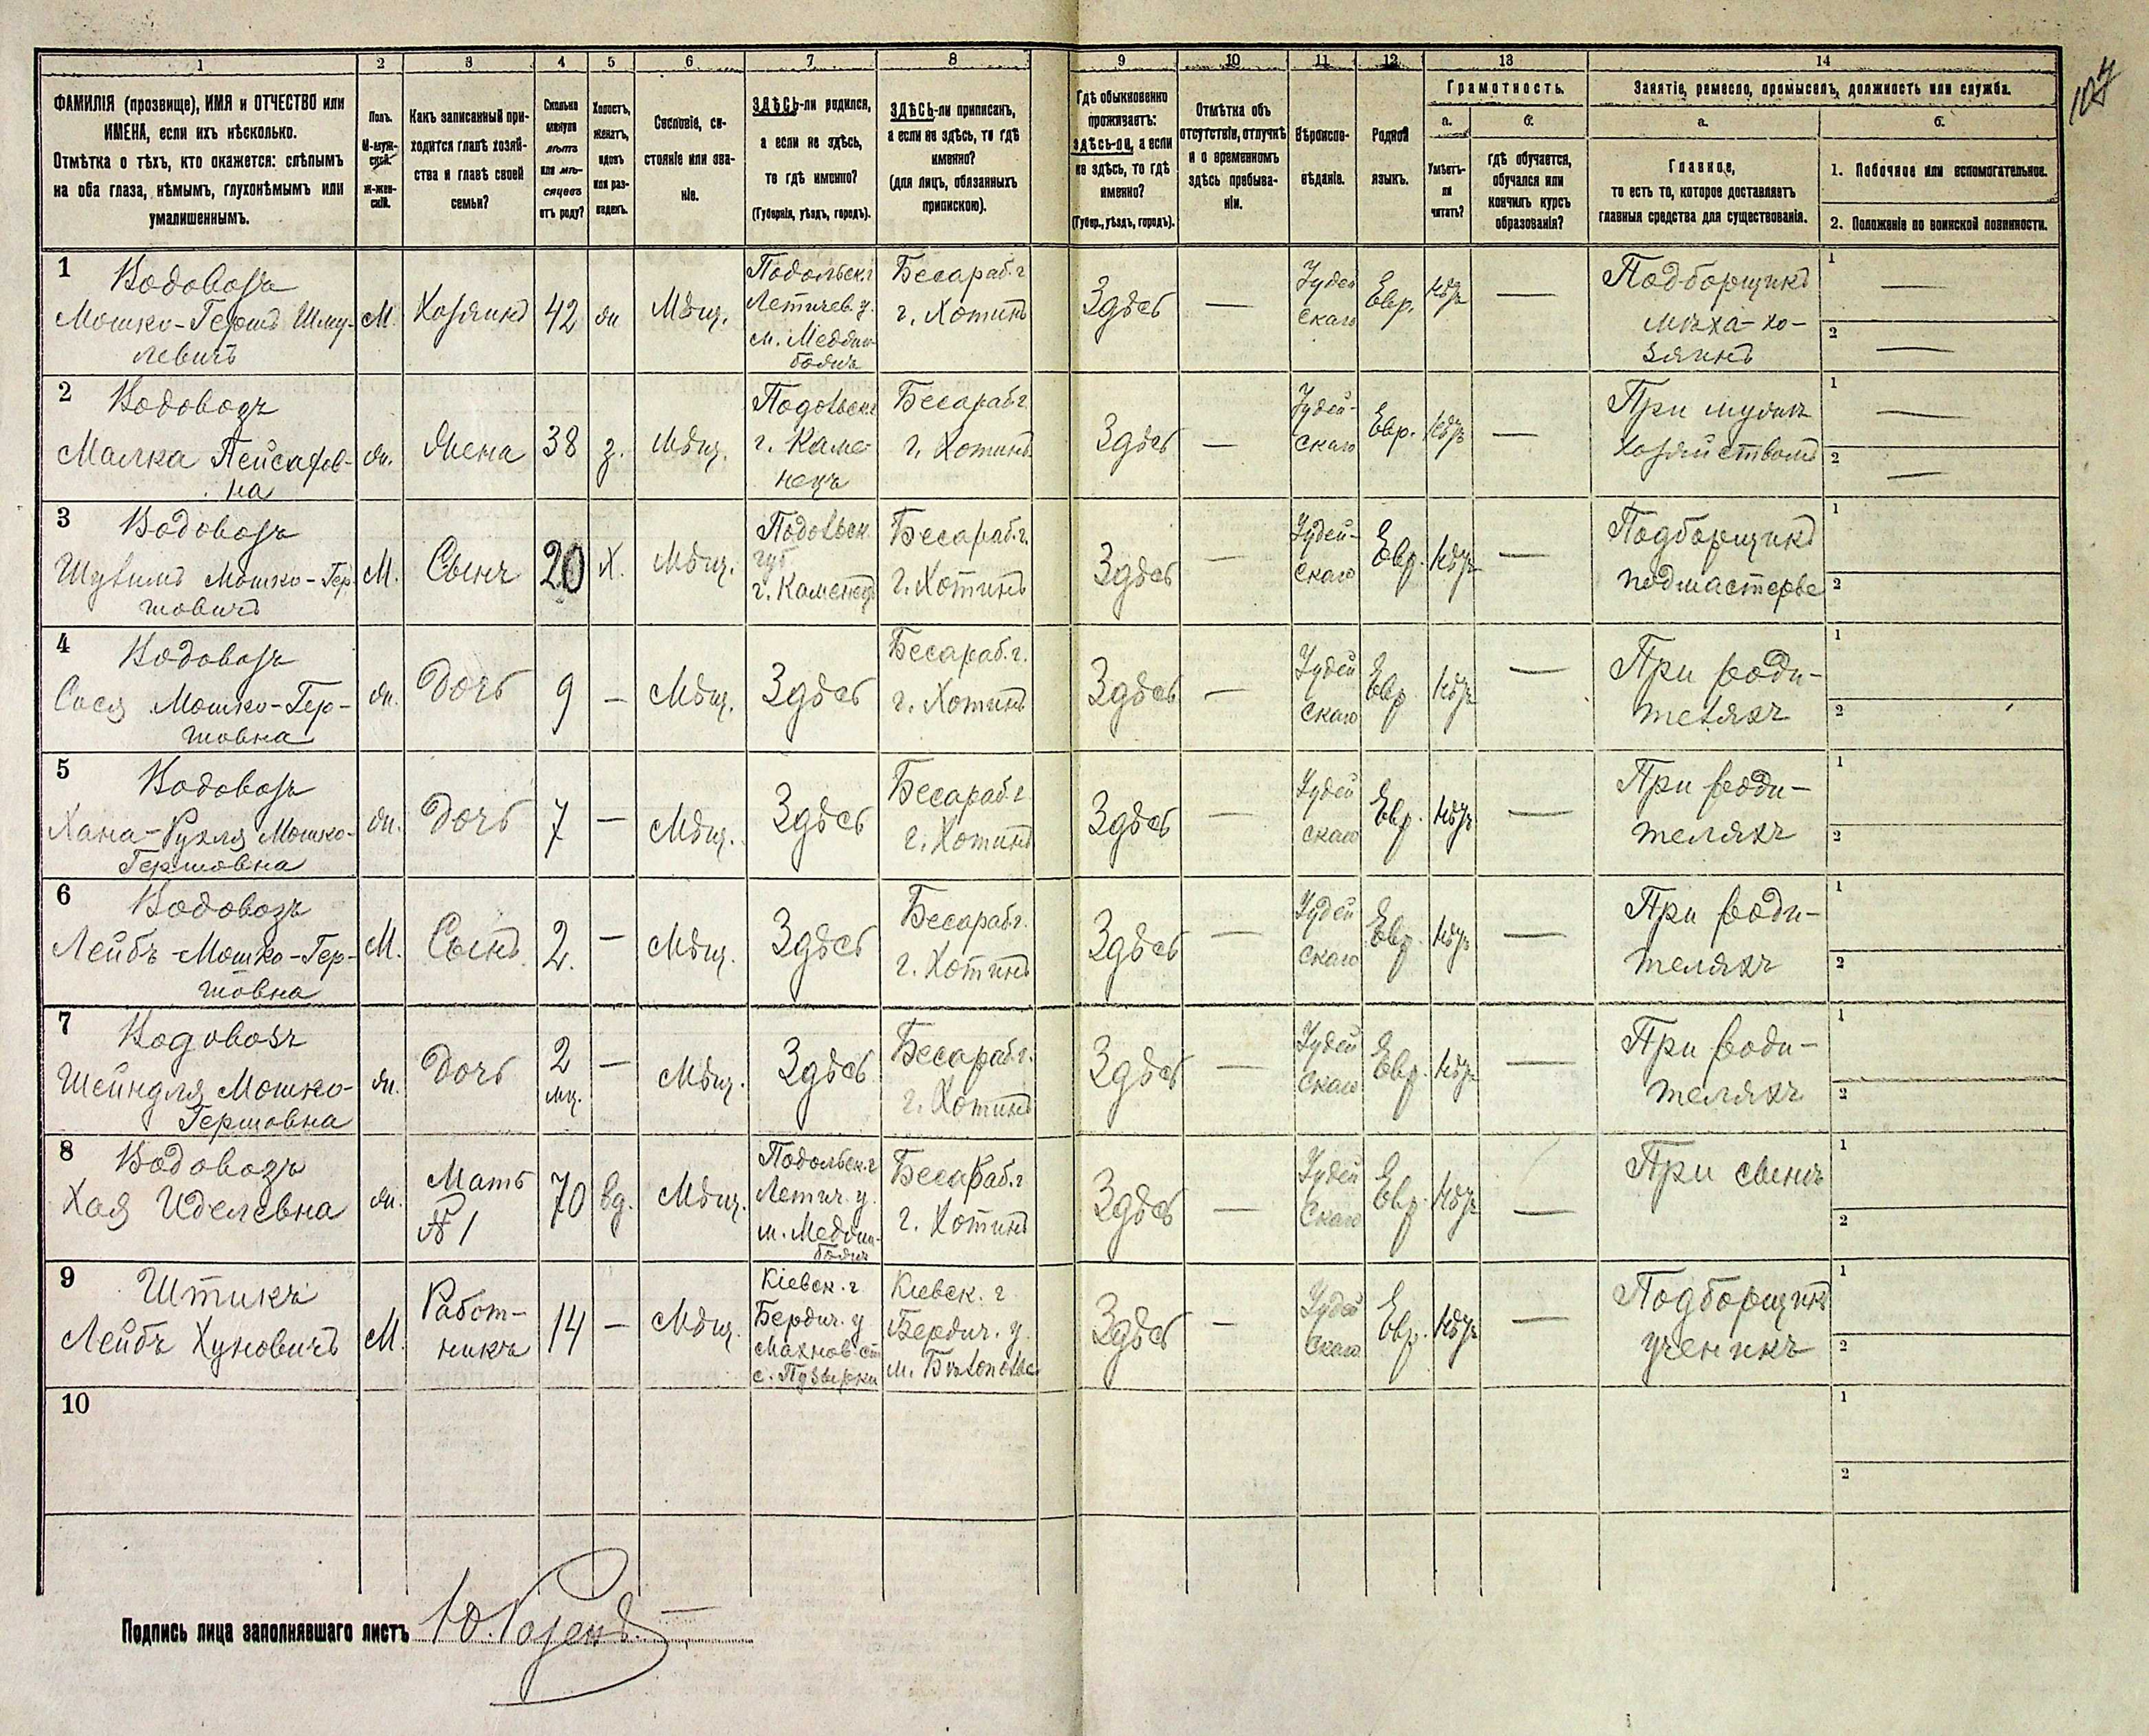 107
1 2 3 4 5 6 7 8 9 10 11 12 13 14
ФАМИЛІЯ (прозвище), ИМЯ и ОТЧЕСТВО или
ИМЕНА, если ихъ нѣсколько.
Отмѣтка о тѣхъ, кто окажется: слѣпымъ
на оба глаза, нѣмымъ, глухонѣмымъ или
умалишеннымъ.
Полъ.
М-муж-
ской.
Ж-жен-
скій.
Какъ записанный при-
ходится главѣ хозяй-
ства и главѣ своей
семьи?
Сколько
минуло
лѣтъ
или мѣ-
сяцевъ
отъ роду?
Холостъ,
женатъ,
вдовъ
или раз-
веденъ.
Сословіе, со-
стояніе или зва-
ніе.
ЗДѢСЬ-ли родился,
а если не здѣсь,
то гдѣ именно?
(Губернія, уѣздъ, городъ).
ЗДѢСЬ-ли приписанъ,
а если не здѣсь, то гдѣ
именно?
(для лицъ, обязанныхъ
припискою).
Гдѣ обыкновенно
проживаетъ:
здѣсь-ли, а если
не здѣсь, то гдѣ
именно?
(Губер., уѣздъ, городъ).
Отмѣтка объ
отсутствіи, отлучкѣ
и о временномъ
здѣсь пребыва-
ніи.
Вѣроиспо-
вѣданіе.
Родной
языкъ.
Грамотность.
а.
Умѣетъ-
ли
читать?
б.
гдѣ обучается,
обучался или
кончилъ курсъ
образованія?
Занятіе, ремесло, промыселъ, должность или служба.
а.
Главное,
то есть то, которое доставляетъ
главныя средства для существованія.
б.
1. Побочное или вспомогательное.
2. Положеніе по воинской повинности.
1 Водовозъ
Мошко-Гершъ Шму-
левичъ
М.
Хозяинъ
42
ж
Мѣщ.
Подольск. г
Летичев. у.
м. Меджи-
божъ
Бесараб. г
г. Хотинъ
Здѣсь
—
Іудей
скаго
Евр.
нѣтъ
—
Подборщикъ
мѣха-хо-
зяинъ
1 —
2 —
2 Водовозъ
Малка Пейсахов-
на
ж.
Жена
38
з.
Мѣщ.
Подольск г
г. Каме-
нецъ
Бесараб г
г. Хотинъ
Здѣсь
—
Іудей-
скаго
Евр.
нѣтъ
—
При мужѣ
хозяйствомъ
1 —
2 —
3 Водовозъ
Шулимъ Мошко-Гер-
шовичъ
М.
Сынъ
20
Х.
Мѣщ.
Подольск.
губ
г. Каменецъ
Бесараб. г.
г. Хотинъ
Здѣсь
—
Іудей-
скаго
Евр.
нѣтъ
—
Подборщикъ
подмастерье
1
2
4 Водовозъ
Сися Мошко-Гер-
шовна
ж.
Дочь
9
—
Мѣщ.
Здѣсь
Бесараб. г.
г. Хотинъ
Здѣсь
—
Іудей
скаго
Евр
нѣтъ
—
При роди-
теляхъ
1
2
5 Водовозъ
Хана-Рухля Мошко-
Гершовна
ж.
Дочь
7
—
Мѣщ.
Здѣсь
Бесараб. г
г. Хотинъ
Здѣсь
—
Іудей
скаго
Евр.
нѣтъ
—
При роди-
теляхъ
1
2
6 Водовозъ
Лейбъ-Мошко-Гер-
шовна
М.
Сынъ
2.
—
Мѣщ.
Здѣсь
Бесараб. г.
г. Хотинъ
Здѣсь
—
Іудей
скаго
Евр.
нѣтъ
—
При роди-
теляхъ
1
2
7 Водовозъ
Шейндля Мошко-
Гершовна
ж.
Дочь
2
мц.
—
Мѣщ.
Здѣсь
Бесараб. г.
г. Хотинъ
Здѣсь
—
Іудей
скаго
Евр.
нѣтъ
—
При роди-
теляхъ
1
2
8 Водовозъ
Хая Иделевна
ж.
Мать
№ 1
70
вд.
Мѣщ.
Подольск. г
Летич. у.
м. Меджи-
божъ
Бесараб. г
г. Хотинъ
Здѣсь
—
Іудей
скаго
Евр.
нѣтъ
—
При сынѣ
1
2
9 Штикъ
Лейбъ Хуновичъ
М.
Работ-
никъ
14
—
Мѣщ.
Кіевск. г
Бердич. у
Махнов ст
с. Пузырки
Кіевск. г
Бердич. у.
м. Бѣлополье
Здѣсь
—
Іудей
скаго
Евр.
нѣтъ
—
Подборщикъ
ученикъ
1
2
10
1
2
Подпись лица заполнявшаго листъ